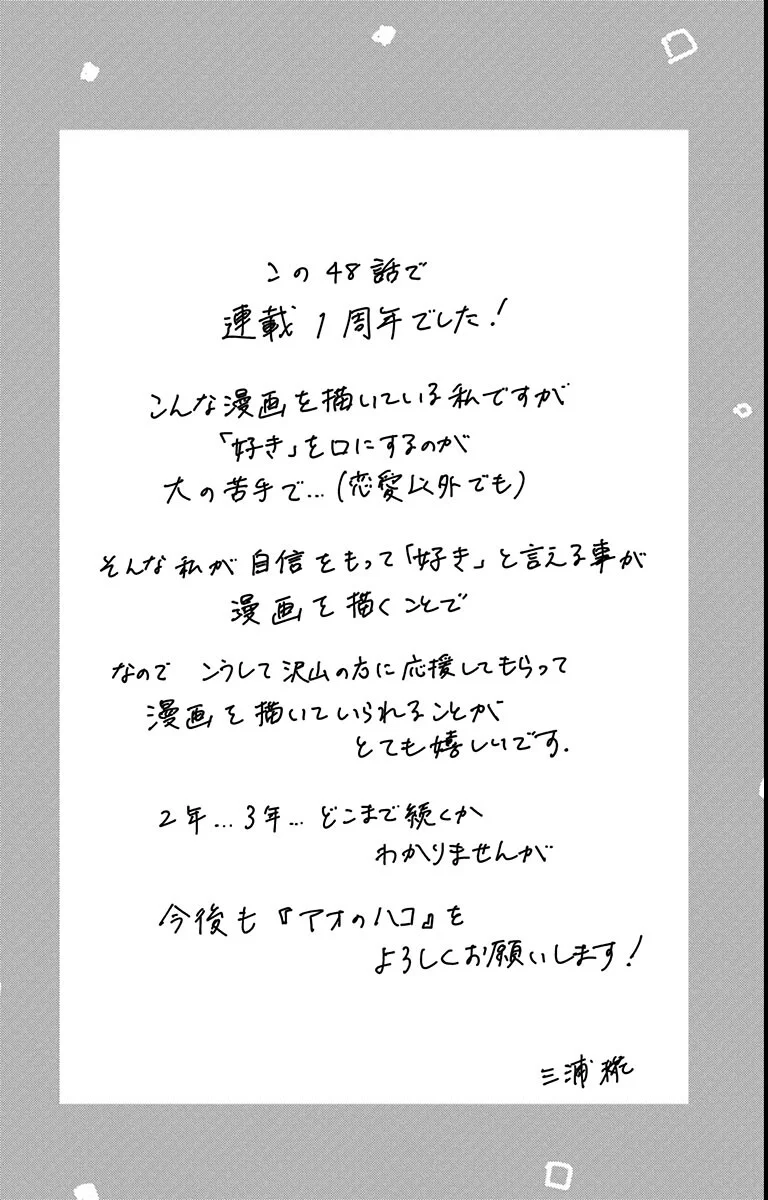 この48話で
連載1周年でした!
こんな漫画を描いている私ですが
「好き」を口にするのが
大の苦手で…(恋愛以外でも)
そんな私が自信をもって「好き」と言える事が
漫画を描くことで
なので こうして沢山の方に応援してもらって
漫画を描いていられることが
とても嬉しいです.
2年…3年…どこまで続くか
わかりませんが
今後も『アオのハコ』を
よろしくお願いします!
三浦糀